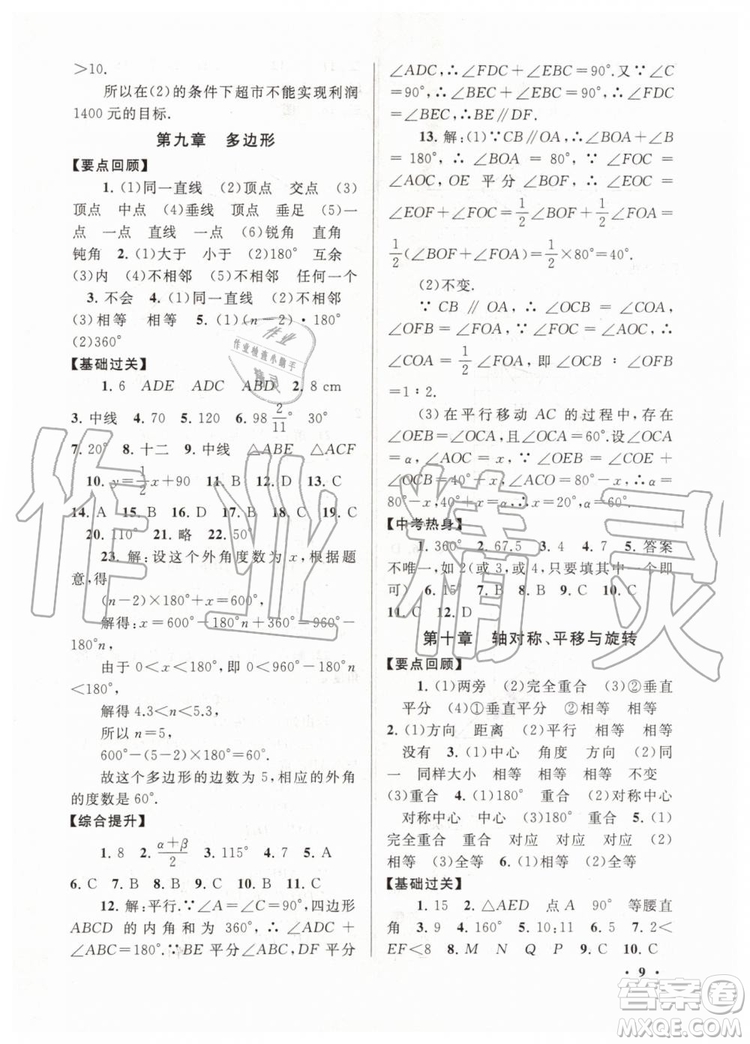 >10.
所以在(2)的条件下超市不能实现利润
1400元的目标.
第九章 多边形
【要点回顾】
1. (1)同一直线 (2)顶点 顶点 (3)
顶点 中点 (4)垂线 顶点 垂足 (5)一
点 一点 直线 一点 (6)锐角 直角
钝角 2. (1)大于 小于 (2)180° 互余
(3)内 (4)不相邻 (5)不相邻 任何一个
3. 不会 4. (1)同一直线 (2)不相邻
(3)相等 相等 5. (1)(n-2)·180°
(2)360°
【基础过关】
1. 6 ADE ADC ABD 2. 8 cm
3. 中线 4. 70 5. 120 6. 98 2/11 30°
7. 20° 8. 十二 9. 中线 △ABE △ACF
10. y=1/2x+90 11. B 12. C 13. C
14. A 15. B 16. D 17. C 18. C
20. 110° 21. 略 22. 50°
23. 解:设这个外角度数为x,根据题
意,得
(n-2)×180°+x=600°.
解得:x=600°-180°n+360°=
960°-180°n.
由于0<x<180°,即0<960°-
180°n<180°,
解得4.3<n<5.3,
因此n=5,
600°-(5-2)×180°=60°.
故这个多边形的边数为5,相应的外角
的度数是60°.
【综合提升】
1. 8 2. α+β/2 3. 115° 4. 3 5. A
6. C 7. D 8. B 9. C 10. B 11. C
12. 解:平行.∵∠A=∠C=90°,四边形
ABCD的内角和为360°,∴∠ADC+
∠ABC=180°.∵BE平分∠ABC,DF平分
∠ADC,∴∠FDC+∠EBC=90°.又∵∠C
=90°,∴∠BEC+∠EBC=90°,∴∠FDC
=∠BEC,∴BE∥DF.
13. 解:(1)∵CB∥OA,∴∠BOA+∠B
=180°,∴∠BOA=80°.∵∠FOC=
∠AOC,OE平分∠BOF,∴∠EOC=
∠EOF+∠FOC=1/2∠BOF+1/2∠FOA=
1/2(∠BOF+∠FOA)=1/2×80°=40°.
(2)不变.
∵CB∥OA,∴∠OCB=∠COA,
∠OFB=∠FOA.∵∠FOC=∠AOC,
∴∠COA=1/2∠FOA,即∠OCB:∠OFB
=1:2.
(3)在平行移动AC的过程中,存在
∠OEB=∠OCA,且∠OCA=60°.设∠OCA
=α,∠AOC=x,∵∠OEB=∠COE+
∠OCB=40°+x,∠ACO=80°-x,∴α=
80°-x,40°+x=80°-x,∴x=20°,∴α=
80°-20°=60°.
【中考热身】
1. 360° 2. 67.5 3. 4 4. 7 5. 答案
不唯一,如2(或3,或4)(只填其中一个即
可) 6. 15 7. B 8. C 9. C 10. B
11. C 12. D
第十章 轴对称、平移与旋转
【要点回顾】
1. (1)两旁 (2)完全重合 (3)①垂直
平分 (4)①完全重合 ②相等 ③垂直平分
2. (1)方向 距离 (2)平行 相等 相等
没有 3. (1)中心 角度 方向 (2)同
一 同样大小 相等 相等 相等 不变
(3)完全重合 4. (1)180° (2)对称中心
对称中心 (3)对称中心 平分 5. (1)
完全重合 对应 对应 对应 对应
(2)相等 相等 (3)全等 (4)全等
【基础过关】
1. 15 2. △AED 点A 90° 等腰直
角 3. 2 4. 160° 5. 10:11 6. 5 7. 0<
EF<8 8. M N Q P 9. C 10. C
·9·
作业精灵
作业
作业检查小助手
精灵
答案圈
MXQE.COM